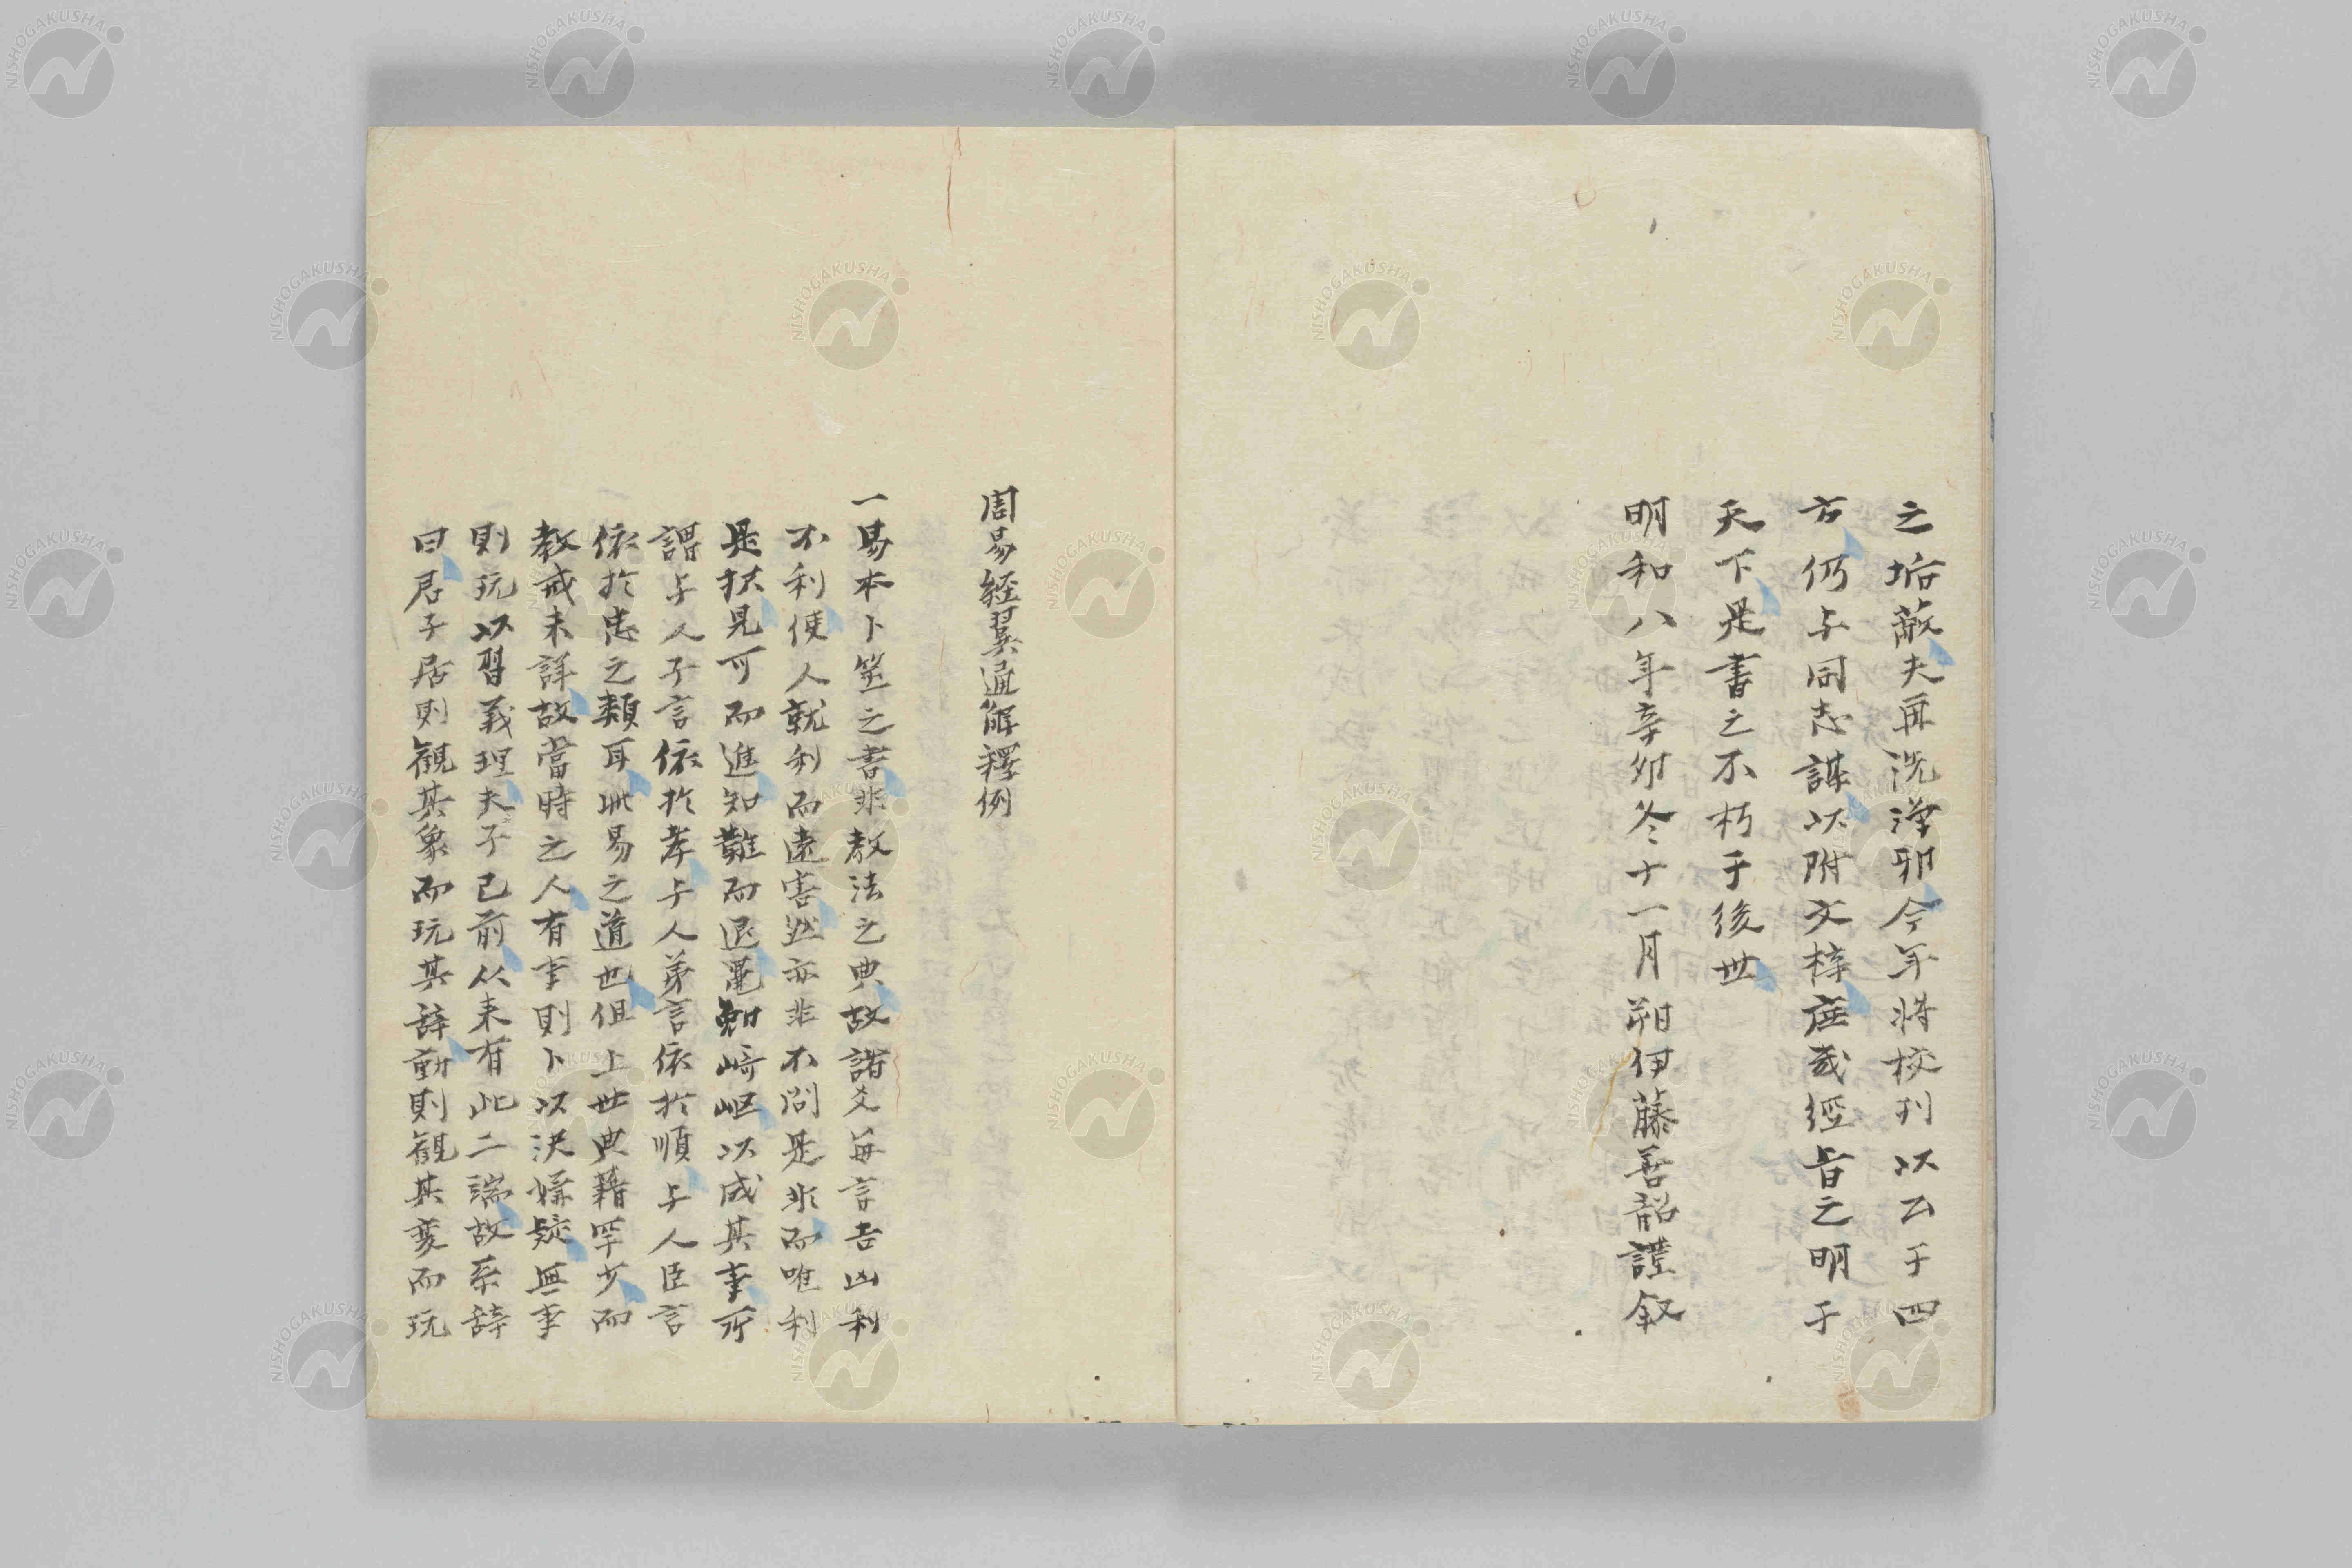 之垢蔽夫再洗滌邪今年將校刊以公于四
方仍与同志謀以附文梓庶或經旨之明于
天下是書之不朽于後世
明和八年辛卯冬十一月朔伊藤善韶謹叙
周易經翼通解釋例
一易本卜筮之書非教法之典故諸爻每言吉凶利
不利使人就利而遠害然亦非不問是非而唯利
是狥見可而進知難而退黽勉崎嶇以成其事所
謂与人子言依於孝与人弟言依於順与人臣言
依於忠之類耳此易之道也但上世典籍罕少而
教戒未詳故當時之人有事則卜以決嫌疑無事
則玩以習義理夫子已前從来有此二端故系辞
曰君子居則觀其象而玩其辞動則觀其変而玩
NISHOGAKUSHA